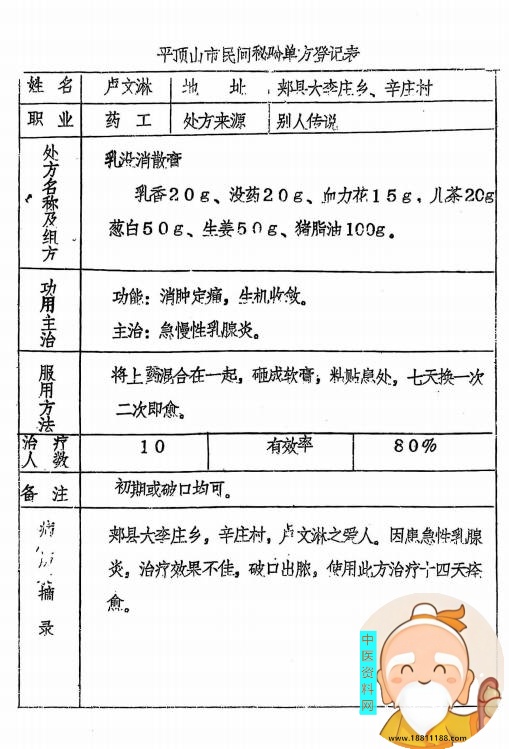 平顶山市民间秘验单方登记表
姓 名 卢文淋 地 址 郏县大李庄乡、辛庄村
职 业 药 工 处方来源 别人传说
处方名称及组方
乳没消散膏
乳香20g、没药20g、血力花15g，儿茶20g
葱白50g、生姜50g、猪脂油100g。
功用主治
功能：消肿定痛，生机收敛。
主治：急慢性乳腺炎。
服用方法
将上药混合在一起，砸成软膏；粘贴患处，七天换一次
二次即愈。
治疗人数 10 有效率 80%
备 注 初期或破口均可。
摘录
郏县大李庄乡，辛庄村，卢文淋之爱人。因患急性乳腺
炎，治疗效果不佳，破口出脓，使用此方治疗十四天痊
愈。
中医资料网
www.18811188.com